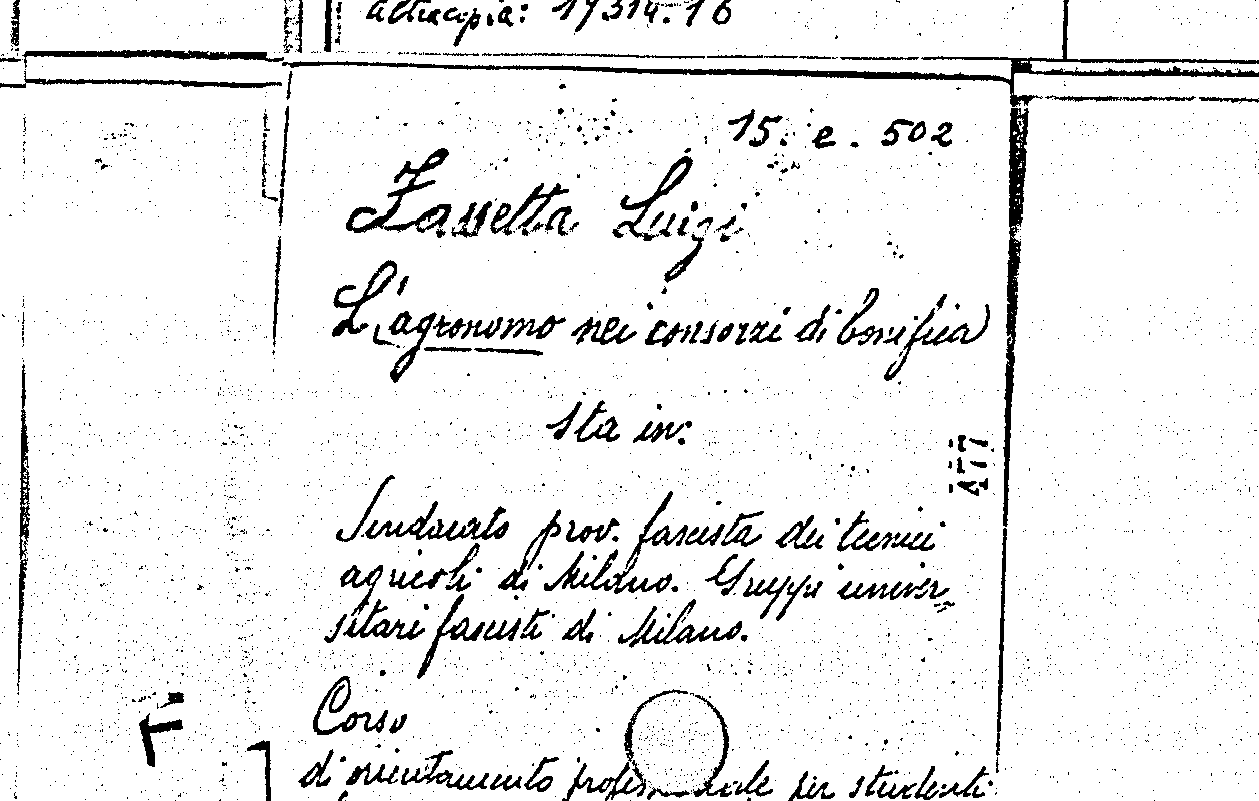 altra copia: 17314.16
15. e. 502
Zassetta Luigi
L'agronomo nei consorzi di bonifica
sta in:
Sindacato prov. fascista dei tecnici
agricoli di Milano. Gruppi univer-
sitari fascisti di Milano.
Corso
di orientamento professionale per studenti